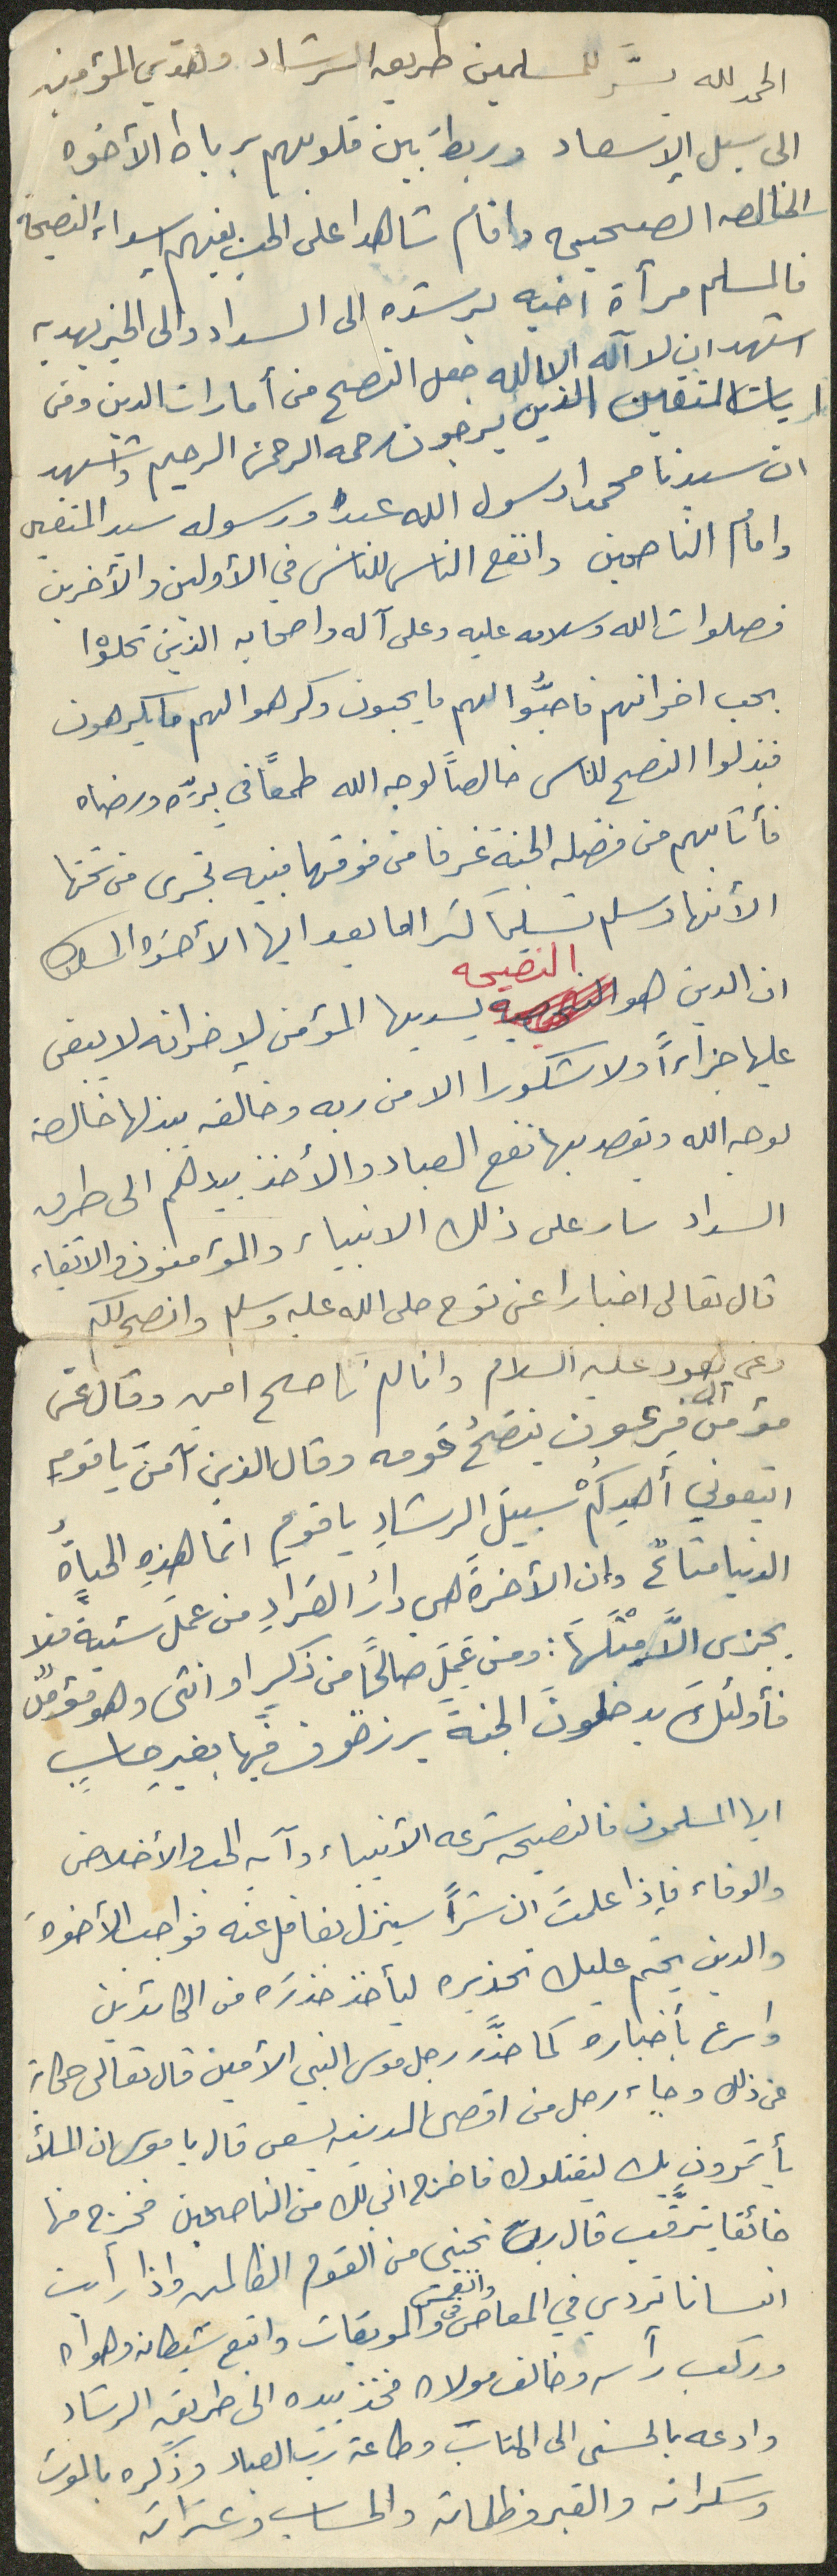 الحمد لله يسَّر للمسلمين طريق الرشاد وهدي المؤمنين
الى سبل الإسعاد وربط بين قلوبهم برباط الأخوه
الخالصه الصحيحه واقام شاهدا على الحب بينهم اسداء النصيحة
فالمسلم مرآة اخيه يرشده الى السداد والى الخير يهديه
اشهد ان لا آله الا الله جعل النصح من أمارات الدين ومن
آيات المتقين الذين يرجون رحمه الرحمن الرحيم واشهد
ان سيدنا محمدا رسول الله عبده ورسوله سيد المتقين
وامام الناصحين وانفع الناس للناس في الأولين والأخرين
فصلوات الله وسلامه عليه وعلى آله واصحابه الذين تحلوْا
بحب اخوانهم فاحبُّوا لهم ما يحبون وكرهوا لهم ما يكرهون
فبذلوا النصح للناس خالصاً لوجه الله طمعاً في برِّه ورضاه
فأثابهم من فضله الجنة غرفا من فوقها مبنيه تجرى من تحتها
الأنهار وسلم تسليما كثيرا اما بعد ايها الأخوه المسلمون
ان الدين هو النصيحه يسديها المؤمن لإخوانه لا يبغى
عليها جزاءاً ولا شكورا الا من ربه وخالقه يبذلها خالصة
لوجه الله ويقصد بها نفع العباد والأخذ بيدهم الى طرق
السداد سار على ذلك الانبياء والمؤمنون والاتقياء
قال تعالى اخبارا عن نوح صلى الله عليه وسلم وانصح لكم
وعن هود عليه السلام وانا لكم ناصح امين وقال عن
مؤمن آل فرعون ينصَحُ قومه وقال الذين آمن يا قوم
اتبعوني أهدِكُمْ سبيلَ الرشادِ يا قومِ انما هذهِ الحياةُ
الدنيا متاعٌ وإن الأخرةَ هي دارُ القرارِ من عمَلَ سيئةً فلا
يجزى الاَّ مثْلَهَا: ومن عَمِلَ صالحًا من ذكرٍ او انثى وهو مؤمنٌ
فأولئكَ يدخلونَ الجنةَ يرزقونَ فيها بغيرِ حسابٍ
ايها المسلمون فالنصيحه شرعه الأنبياء وآيه الحب والأخلاص
والوفاء فإذا علمتَ ان شراً سينزل بغافل عنه فواجب الأخوة
والدين يحتم عليك تحذيره ليأخذ حذرَه من الكائدين
واسرع بأخباره كما حذَّر رجل موسى النبي الأمين قال تعالى حكاية
عن ذلك وجاء رجل من اقصى المدينه يسعى قال يا موسى ان الملأ
يأتمرون بك ليقتلوك فاخرج اني لك من الناصحين فخرج منها
خائفا يترقَّب قال رب نجنى من القوم الظالمين واذا رأيت
انسانا تردي في المعاصى وانغمس فى الموبقات واتبع شيطانه وهواه
وركب رأسه وخالف مولاه فخذ بيده الى طريق الرشاد
وادعه بالحسنى الى المتاب وطاعة رب العباد وذكره بالموت
وسكراته والقبر وظلماته والحساب وعثراته